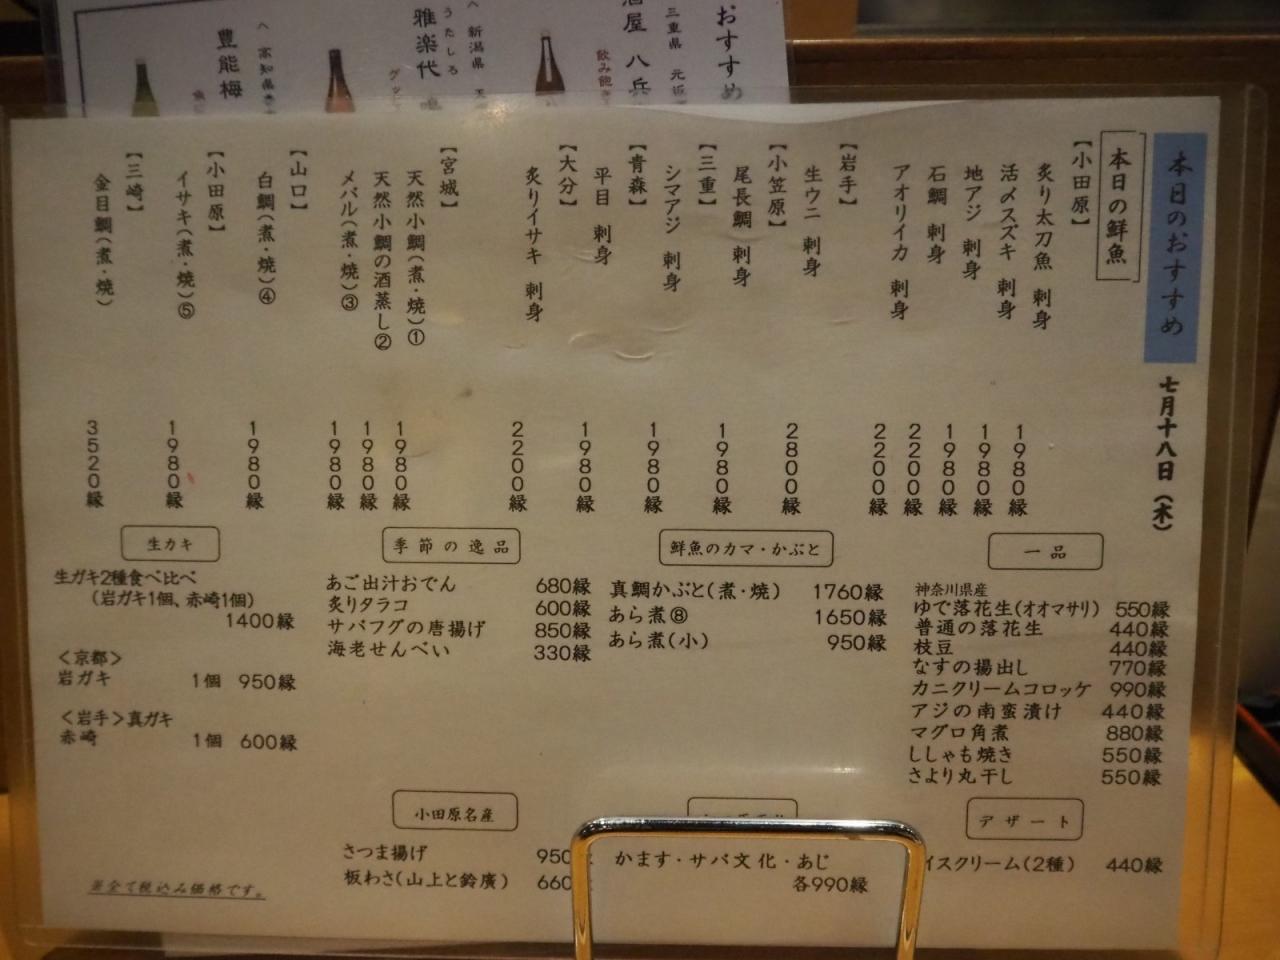 おすすめ
三重県
酒屋 八兵
飲み飽き
新潟県
うたしろ
雅楽代
高知県
豊能梅
本日のおすすめ 七月十八日(木)
本日の鮮魚
【小田原】
炙り太刀魚 刺身 1980縁
活〆スズキ 刺身 1980縁
地アジ 刺身 1980縁
石鯛 刺身 2200縁
アオリイカ 刺身 2200縁
【岩手】
生ウニ 刺身 2800縁
【小笠原】
尾長鯛 刺身 1980縁
【三重】
シマアジ 刺身 1980縁
【青森】
平目 刺身 1980縁
【大分】
炙りイサキ 刺身 2200縁
【宮城】
天然小鯛(煮・焼)① 1980縁
天然小鯛の酒蒸し② 1980縁
メバル(煮・焼)③ 1980縁
【山口】
白鯛(煮・焼)④ 1980縁
【小田原】
イサキ(煮・焼)⑤ 1980縁
【三崎】
金目鯛(煮・焼) 3520縁
一品
神奈川県産
ゆで落花生(オオマサリ) 550縁
普通の落花生 440縁
枝豆 440縁
なすの揚出し 770縁
カニクリームコロッケ 990縁
アジの南蛮漬け 440縁
マグロ角煮 880縁
ししゃも焼き 550縁
さより丸干し 550縁
デザート
イスクリーム(2種) 440縁
鮮魚のカマ・かぶと
真鯛かぶと(煮・焼) 1760縁
あら煮⑧ 1650縁
あら煮(小) 950縁
かます・サバ文化・あじ
各990縁
季節の逸品
あご出汁おでん 680縁
炙りタラコ 600縁
サバフグの唐揚げ 850縁
海老せんべい 330縁
小田原名産
さつま揚げ 950
板わさ(山上と鈴廣) 660
生カキ
生ガキ2種食べ比べ
(岩ガキ1個、赤崎1個)
1400縁
<京都>
岩ガキ 1個 950縁
<岩手>真ガキ
赤崎 1個 600縁
※全て税込み価格です。